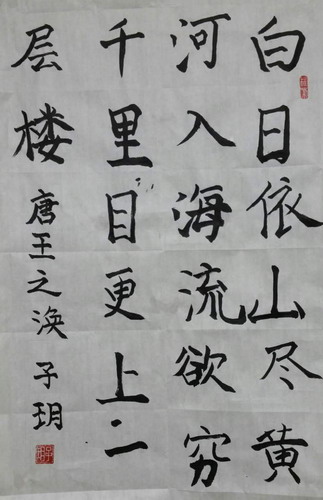 白日依山尽黄
河入海流欲穷
千里目更上二
层楼 唐王之涣 子玥